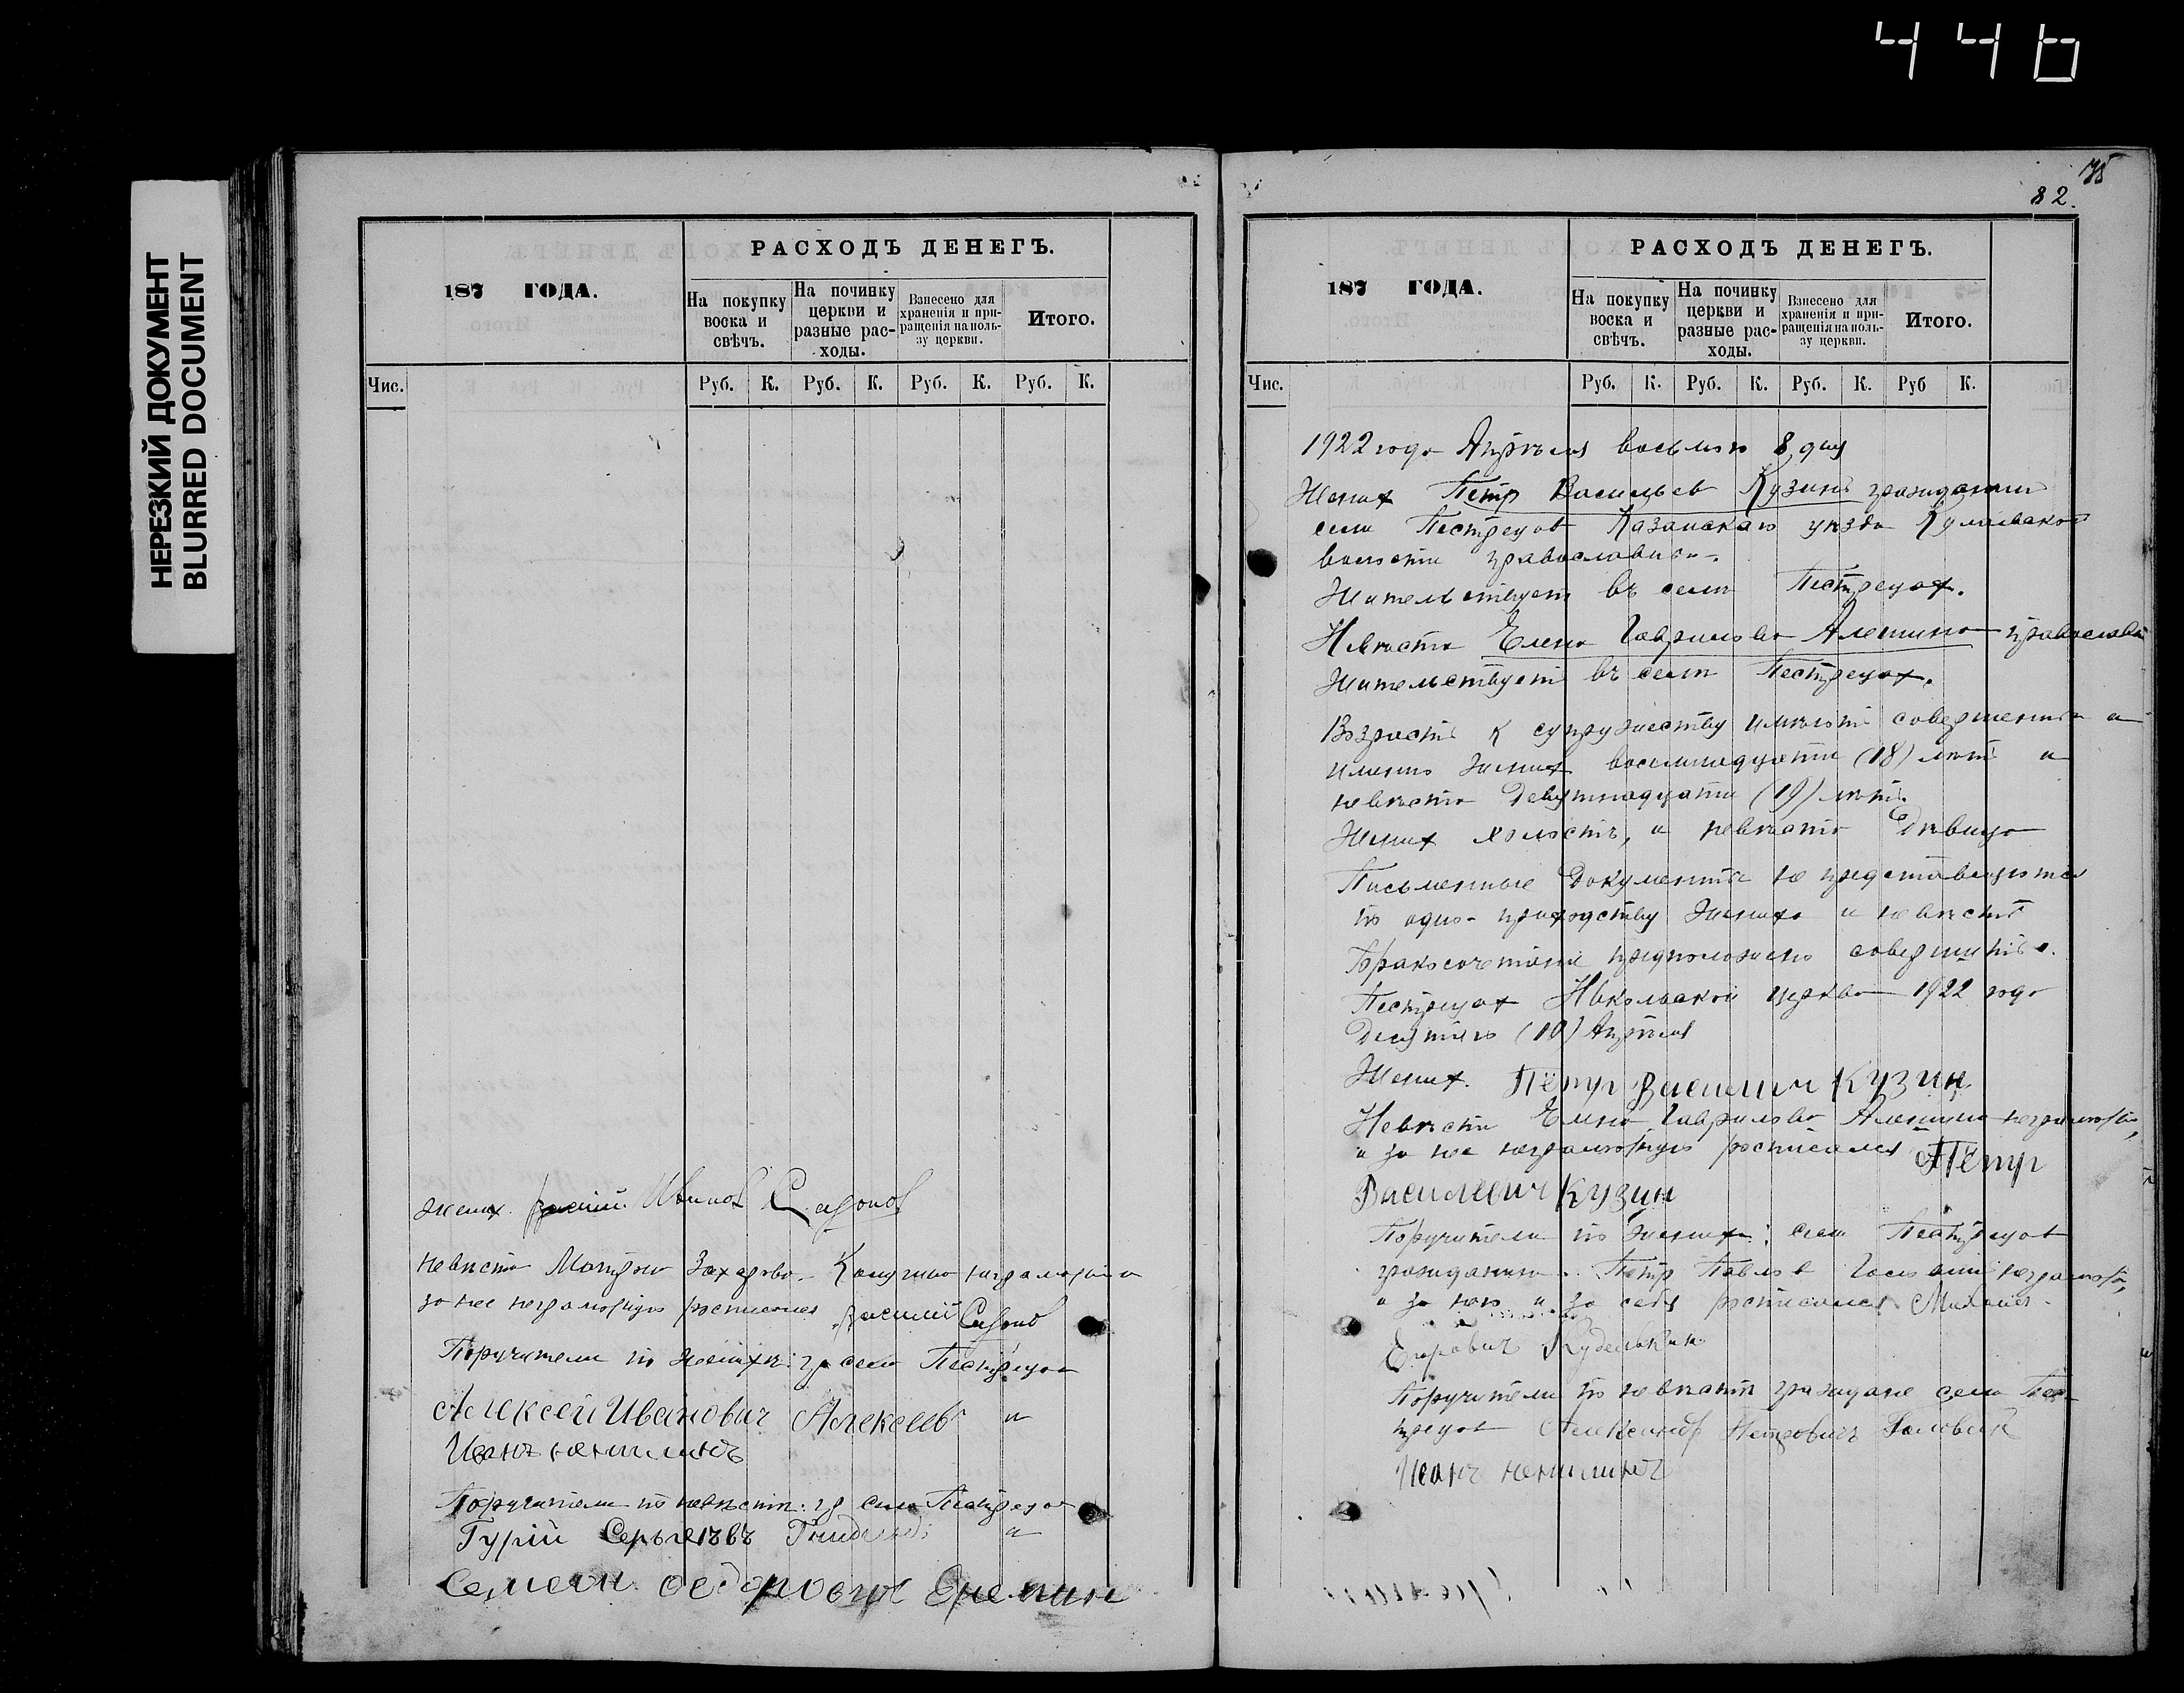 446
НЕРЕЗКИЙ ДОКУМЕНТ
BLURRED DOCUMENT
187 ГОДА.
РАСХОДЪ ДЕНЕГЪ.
На покупку воска и свѣчъ.
На починку церкви и разные расходы.
Взнесено для храненія и приращенія на пользу церкви.
Итого.
Чис.
Руб. К. Руб. К. Руб. К. Руб. К.
жених Василий Иванов Сафонов
невѣста Матрона Захарова неграмотна и
за нее неграмотную росписался Василий Сафонов
Поручители по женихѣ: гр села Пестрецов
Алексей Иванович Алексеевъ и
Иванъ
Поручители по невѣстѣ: гр села Пестрецов
Гурий и
Семен Федорович Еремин
82.
187 ГОДА.
РАСХОДЪ ДЕНЕГЪ.
На покупку воска и свѣчъ.
На починку церкви и разные расходы.
Взнесено для храненія и приращенія на пользу церкви.
Итого.
Чис.
Руб. К. Руб. К. Руб. К. Руб К.
1922 года Апрѣля восьмого 8 дня
Жених Петр Васильев Кузинъ гражданин
села Пестрецов Казанскаго уѣзда
волости православнаго.
Жительствует въ селѣ Пестрецах.
Невѣста Елена Гаврилова Алешина православн
Жительствует въ селѣ Пестрецах.
Возраст к супружеству имѣют совершенный а
именно жених восемнадцати (18) лѣт а
невѣста девятнадцати (19) лѣт.
Жених холостъ, а невѣста дѣвица
Письменные документы не представляются
по одно-приходству жениха и невѣсты
Бракосочетание предположено совершить в
Пестрецах Никольской церкви 1922 года
Десятаго (10) Апрѣля
Жених. Пётр Василич Кузин
Невѣста Елена Гаврилова Алешина неграмотна,
а за нее неграмотную росписался Пётр
Василевич Кузин
Поручители по женихѣ: села Пестрецов
граждане Петр Павлов неграмотн,
а за него и за себя росписался Михаил
Егорович Куделькин
Поручители по невѣстѣ граждане села Пест
рецов Александр Петрович
Иванъ